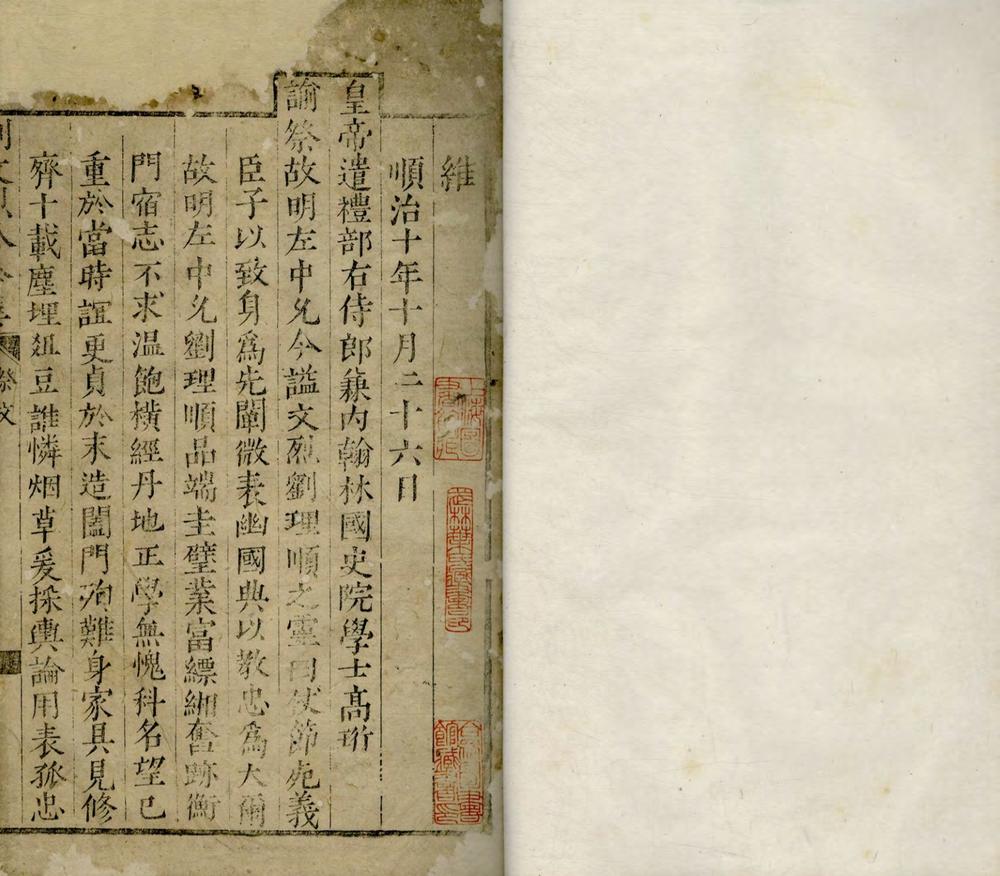 維
順治十年十月二十六日
皇帝遣禮部右侍郎兼內翰林國史院學士高珩
諭祭故明左中允今謚文烈劉理順之靈曰仗節死義
臣子以致身爲先闡微表幽國典以教忠爲大爾
故明左中允劉理順品端圭璧業富縹緗奮跡衡
門宿志不求温飽橫經丹地正學無愧科名望已
重於當時誼更貞於末造闔門殉難身家具見修
齊十載塵埋俎豆誰憐烟草爰採輿論用表孤忠
祭文
上海圖書館藏
武林葉氏藏書印